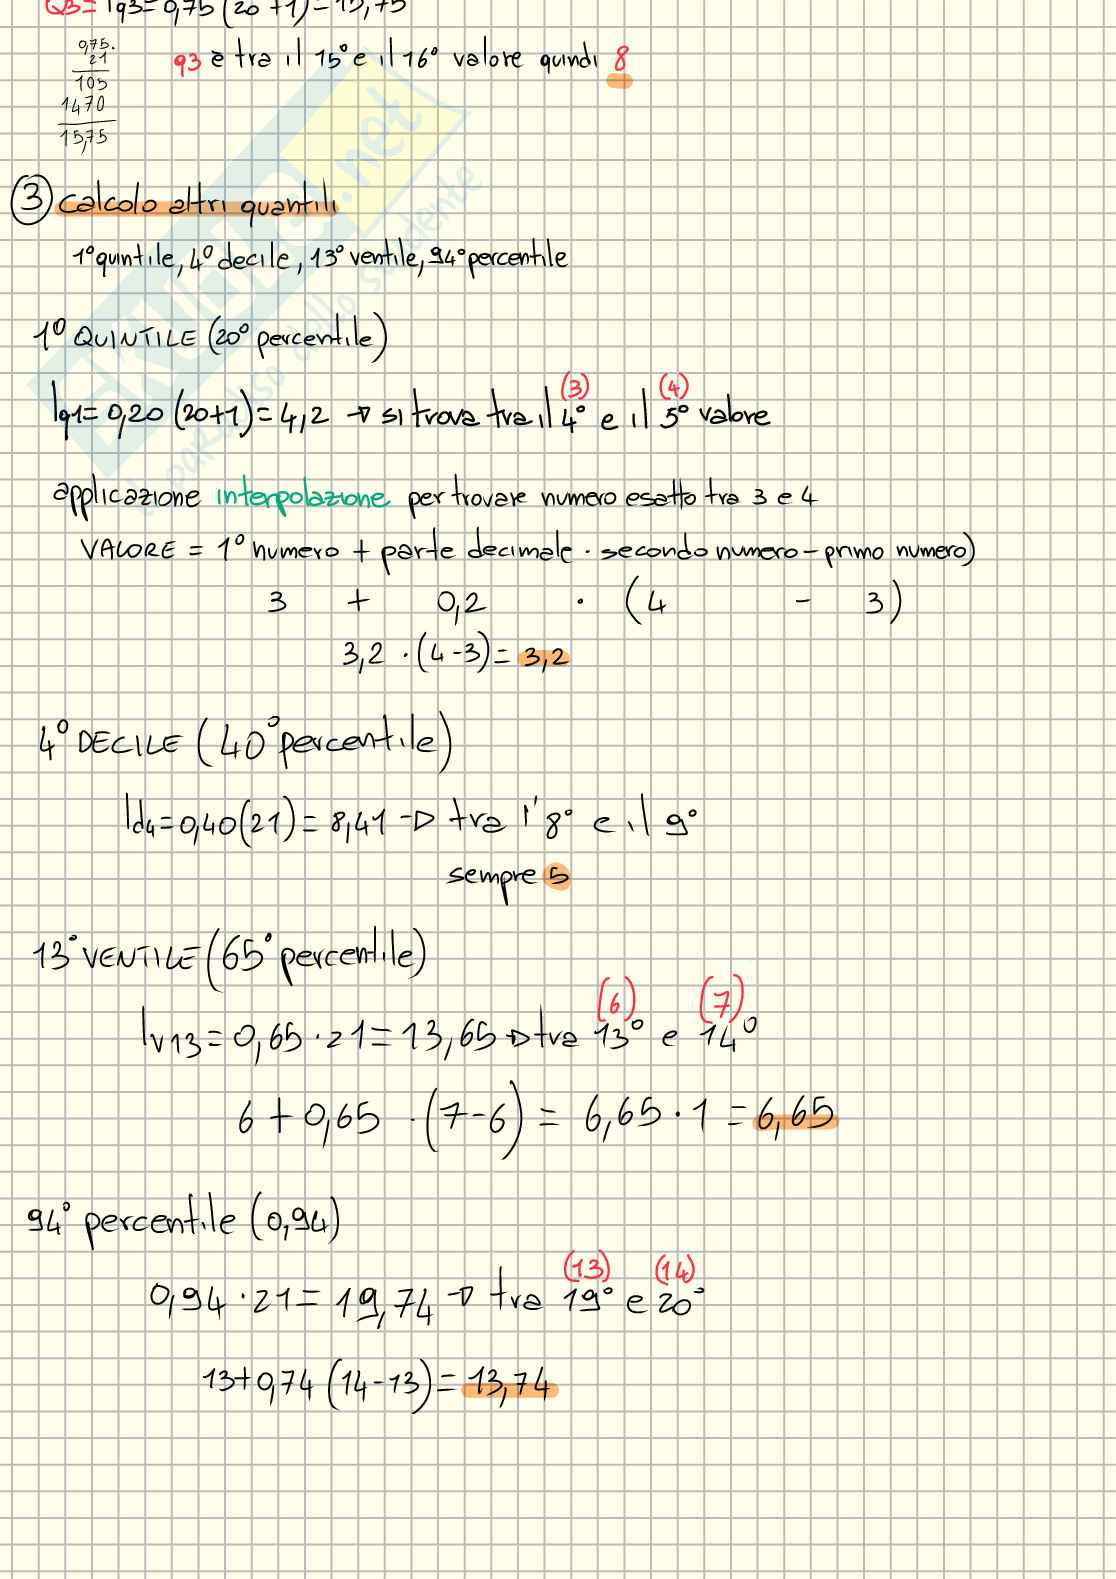 Q3= Iq3=0,75(20+1)=15,75
0,75·
21
105
1470
15,75
q3 è tra il 15° e il 16° valore quindi 8
3 calcolo altri quantili
1° quintile, 4° decile, 13° ventile, 94° percentile
1° QUINTILE (20° percentile)
(3) (4)
Iq1=0,20(20+1)=4,2 → si trova tra il 4° e il 5° valore
applicazione interpolazione per trovare numero esatto tra 3 e 4
VALORE = 1° numero + parte decimale · secondo numero - primo numero)
3 + 0,2 · (4 - 3)
3,2 · (4-3)= 3,2
4° DECILE (40° percentile)
Id4=0,40(21)=8,41 → tra l'8° e il 9°
sempre 5
13° VENTILE (65° percentile)
(6) (7)
Iv13=0,65·21=13,65 → tra 13° e 14°
6+0,65 ·(7-6) = 6,65·1 = 6,65
94° percentile (0,94)
(13) (14)
0,94·21=19,74 → tra 19° e 20°
13+0,74(14-13)= 13,74
.net